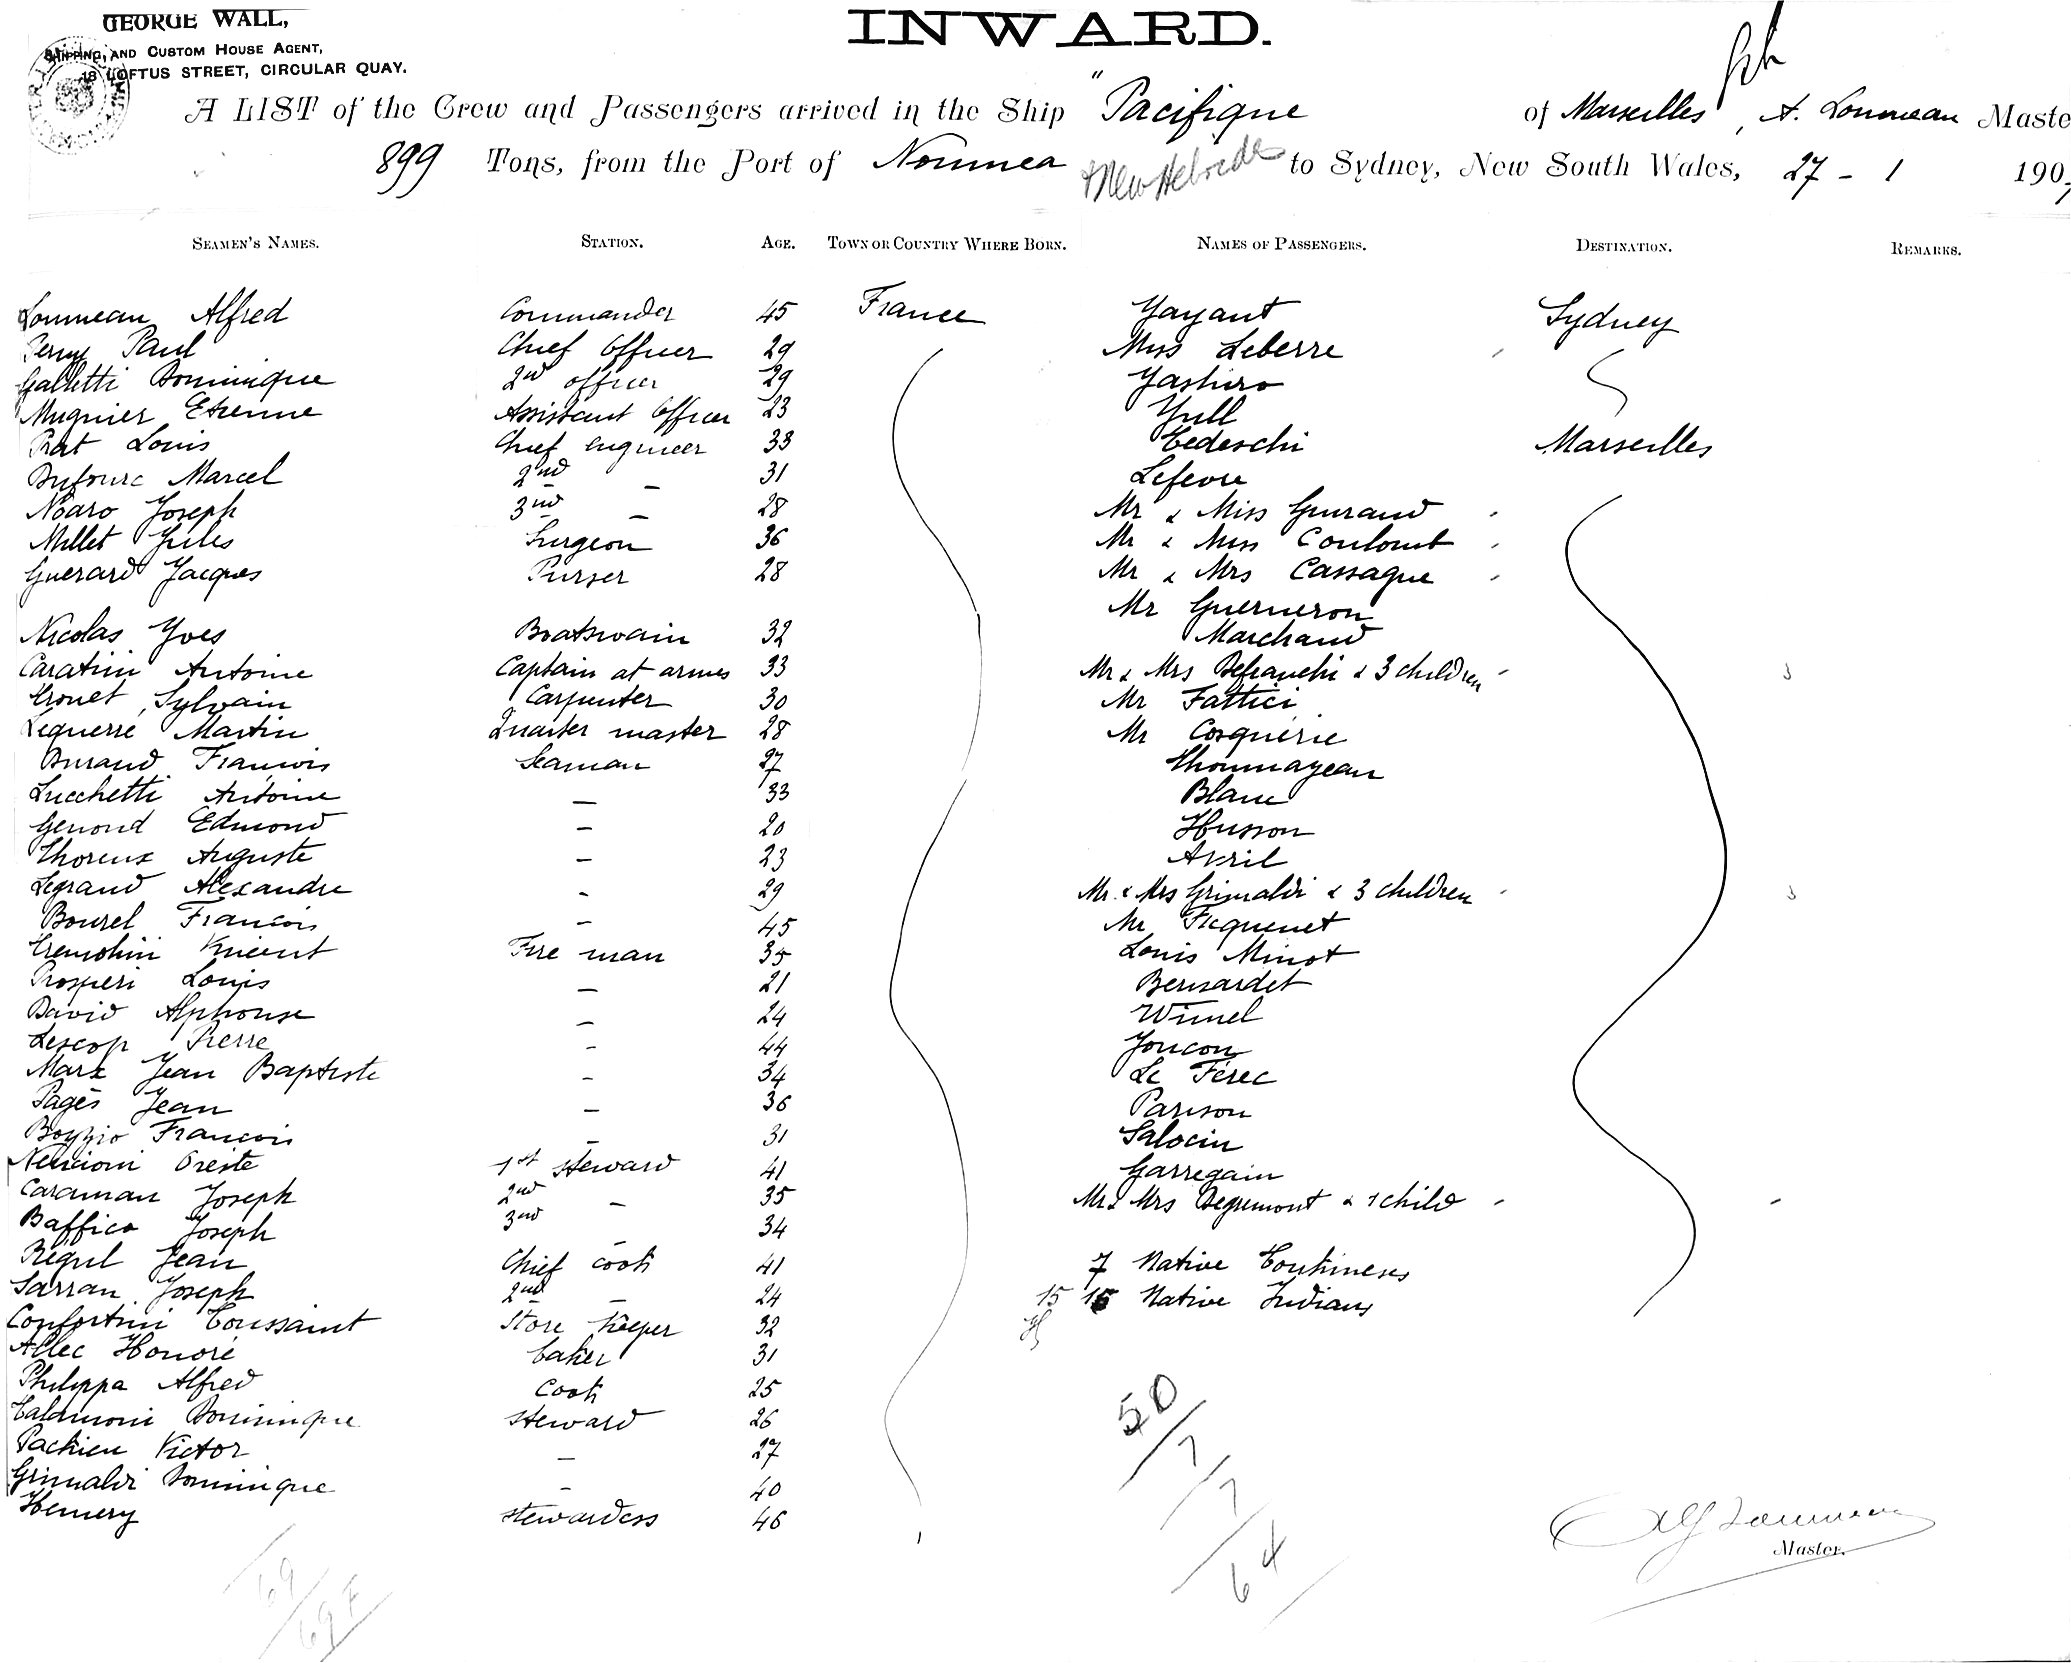 GEORGE WALL,
SHIPPING, AND CUSTOM HOUSE AGENT,
18 LOFTUS STREET, CIRCULAR QUAY.
INWARD.
A LIST of the Crew and Passengers arrived in the Ship "Pacifique of Marseilles, A. Loumeau Maste
899 Tons, from the Port of Noumea & New Hebrides to Sydney, New South Wales, 27 - 1 190
SEAMEN'S NAMES. STATION. AGE. TOWN OR COUNTRY WHERE BORN. NAMES OF PASSENGERS. DESTINATION. REMARKS.
Loumeau Alfred Commander 45 France Yayant Sydney
Paul Chief Officer 29 Miss Leberre
Galletti Dominique 2nd officer 29 Yashiro
Mugnier Etienne Assistant Officer 23 Yull
Prat Louis Chief engineer 33 Tedeschi Marseilles
Dufourc Marcel 2nd - 31 Lefevre
Noaro Joseph 3nd - 28 Mr & Miss Guiraud
Millet Jules Surgeon 36 Mr & Miss Coulomb
Guerard Jacques Purser 28 Mr & Mrs Cassagne
Mr Guerneron
Nicolas Yves Boatswain 32 Marchand
Caratini Antoine Captain at armes 33 Mr & Mrs Defranchi & 3 children
Tronet Sylvain Carpenter 30 Mr Fattici
Lequerré Martin Quarter master 28 Mr Cosquerie
Durand François Seaman 27 Thommageau
Lucchetti Antoine - 33 Blanc
Genond Edmond - 20 Husson
Thoreux Auguste - 23 Avril
Legrand Alexandre - 29 Mr & Mrs Grimaldi & 3 children
Bourel Francois - 45 Mr Ficquenet
Tremolini Vincent Fire man 35 Louis Minot
Prosperi Louis - 21 Bernardet
David Alphonse - 24 Wimel
Lescop Pierre - 44 Joucon
Marx Jean Baptiste - 34 Le Férec
Pagès Jean - 36 Parison
Boggio Francois - 31 Salocin
Nencioni Oreste 1st steward 41 Garregain
Caraman Joseph 2nd - 35 Mr & Mrs Degremont & 1 child
Baffico Joseph 3nd - 34
Regul Jean Chief cook 41 7 Native Tonkineses
Sarran Joseph 2nd - 24 15 15 Native Indians
Confortini Toussaint Store Keeper 32
Allec Honoré baker 31
Philippa Alfred Cook 25
Talamoni Dominique steward 26
Pachieu Victor - 27
Grimaldi Dominique - 40
Hemery stewardess 46
50
7
7
64
Alf Loumeau
Master.